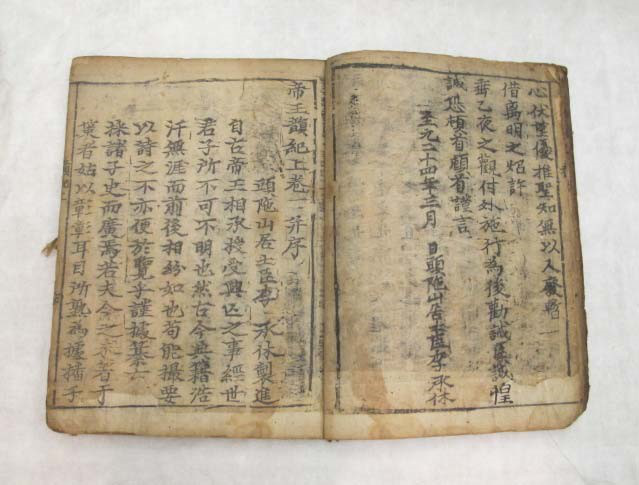 心伏望優推聖知無以人廢
借离明之炤許
垂乙夜之觀付外施行為後勸誡臣誠惶
誠恐頓首頓首謹言
至元二十四年三月 日頭陁山居士臣李 承休
帝王韻紀上卷一并序
頭陁山居士臣李 承休製進
自古帝王相承授受興亡之事經世
君子所不可不明也然古今典籍浩
汗無涯而前後相紛如也苟能撮要
以詩之不亦便於覽乎謹據纂
採諸子史而廣焉若夫今之未著于
策者姑以章章耳目所熟為據播于